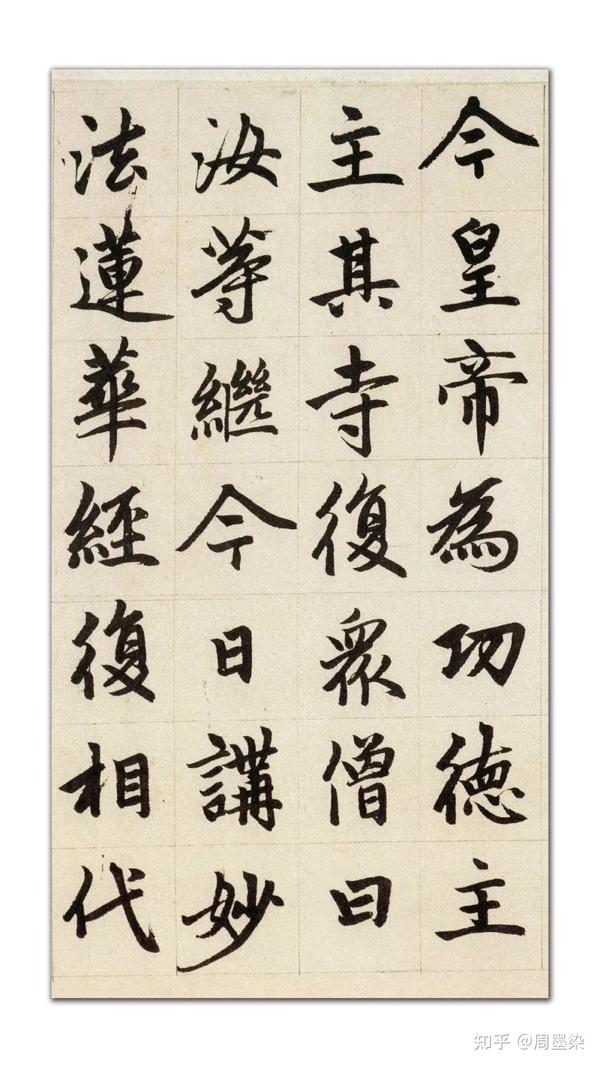 今皇帝為功德主
主其寺復眾僧曰
汝等繼今日講妙
法蓮華經復相代
知乎 @周墨染